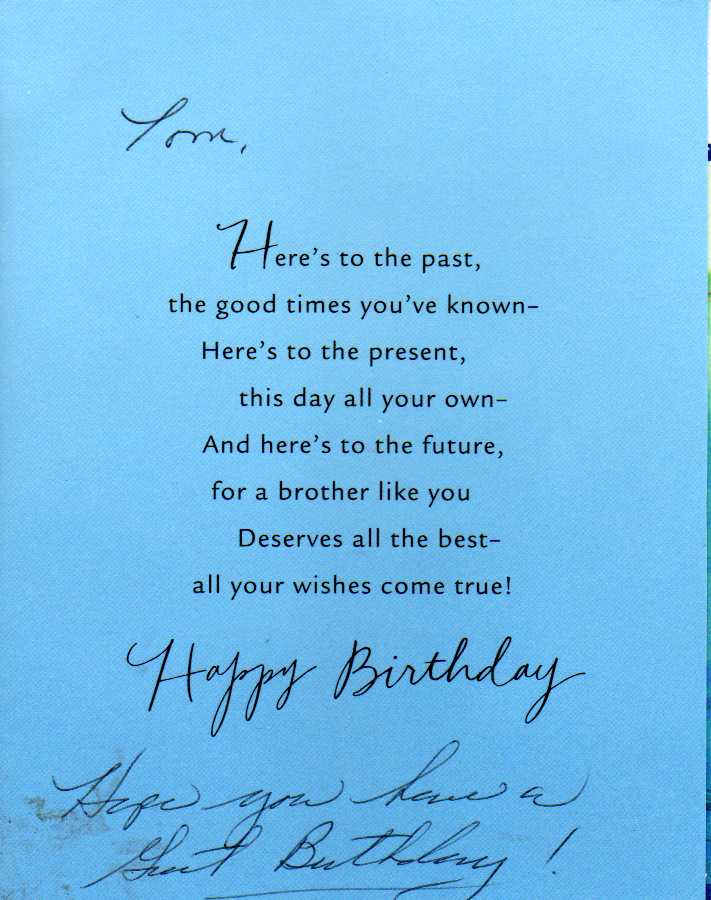 Tom,
Here's to the past,
the good times you've known–
Here's to the present,
this day all your own–
And here's to the future,
for a brother like you
Deserves all the best–
all your wishes come true!
Happy Birthday
Hope you have a
Great Birthday!